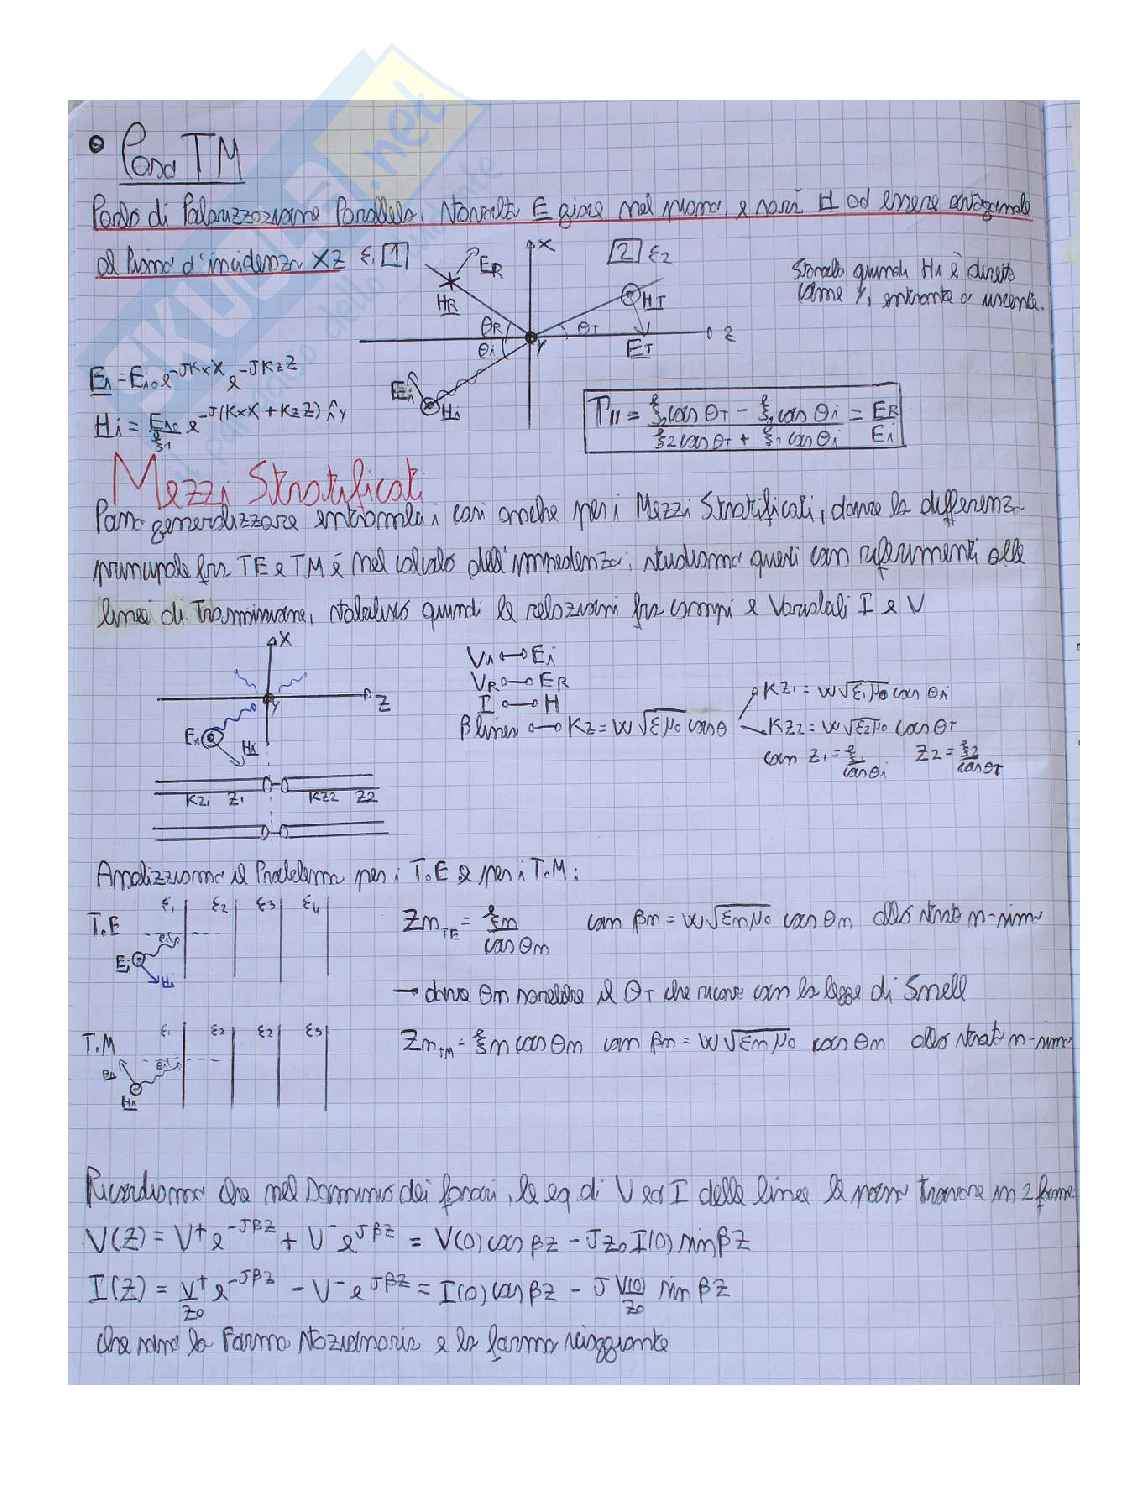 • Caso TM
Parlo di Polarizzazione Parallela, stavolta E giace nel piano, e sarà H ad essere ortogonale
al Piano d'incidenza XZ ε1 [1] ER X [2] ε2
Stando quindi Hi è diretto
come Y, entrante o uscente.
HR HT
θR θT Z
θi Y ET
Ei = Ei0 e^-JKxX e^-JKzZ
Ei Hi
Hi = Ei0/ξ1 e^-J(KxX + KzZ) îy
Γ// = (ξ2 cos θT - ξ1 cos θi)/(ξ2 cos θT + ξ1 cos θi) = ER/Ei
Mezzi Stratificati
Posso generalizzare entrambi i casi anche per i Mezzi Stratificati, dove la differenza
principale fra TE e TM è nel calcolo dell'impedenza, studiamo questi con riferimenti alle
linee di Trasmissione, stabilisco quindi le relazioni fra campi e Variabili I e V
X
Z
Y
Ei Hi
Vi ↔ Ei
VR ↔ ER
I ↔ H
β linea ↔ Kz = W√εμ0 cosθ
Kz1 = W√ε1μ0 cos θi
Kz2 = W√ε2μ0 cos θT
con Z1 = ξ/cosθi Z2 = ξ2/cosθT
Kz1 Z1 Kz2 Z2
Analizziamo il Problema per i T.E e per i T.M:
T.E ε1 ε2 ε3 ε4
Ei Hi
ZnTE = ξn/cos θn con βn = W√εnμ0 cos θn dello strato n-simo
→ dove θn sarebbe il θT che ricavo con la legge di Snell
T.M ε1 ε2 ε2 ε3
Ei Hi
ZnTM = ξn cos θn con βn = W√εnμ0 cos θn dello strato n-simo
Ricordiamo che nel Dominio dei fasori, le eq di V ed I delle linee le posso trovare in 2 forme
V(Z) = V+ e^-JβZ + V- e^JβZ = V(0) cos βZ - J Z0 I(0) sin βZ
I(Z) = V+/Z0 e^-JβZ - V- e^JβZ = I(0) cos βZ - J V(0)/Z0 sin βZ
che sono la Forma Stazionaria e la forma viaggiante
SKUOLA.net